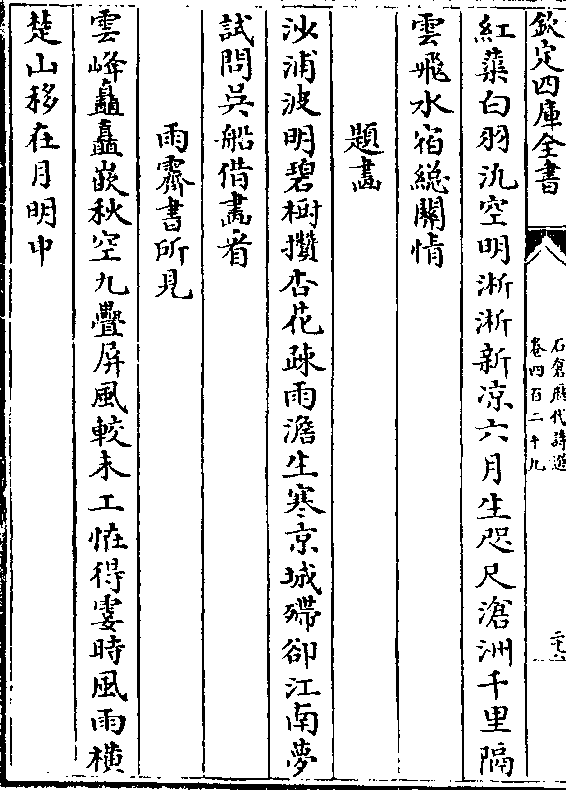 欽定四庫全書
石倉歴代詩選
卷四百二十九
紅蕖白羽氿空明淅淅新凉六月生咫尺滄洲千里隔
雲飛水宿緫關情
題畫
沙浦波明碧樹攢杏花疎雨澹生寒京城殢卻江南夢
試問吳船借畫看
雨霽書所見
雲峰矗矗嵌秋空九疊屏風較未工恠得霎時風雨横
楚山移在月明中